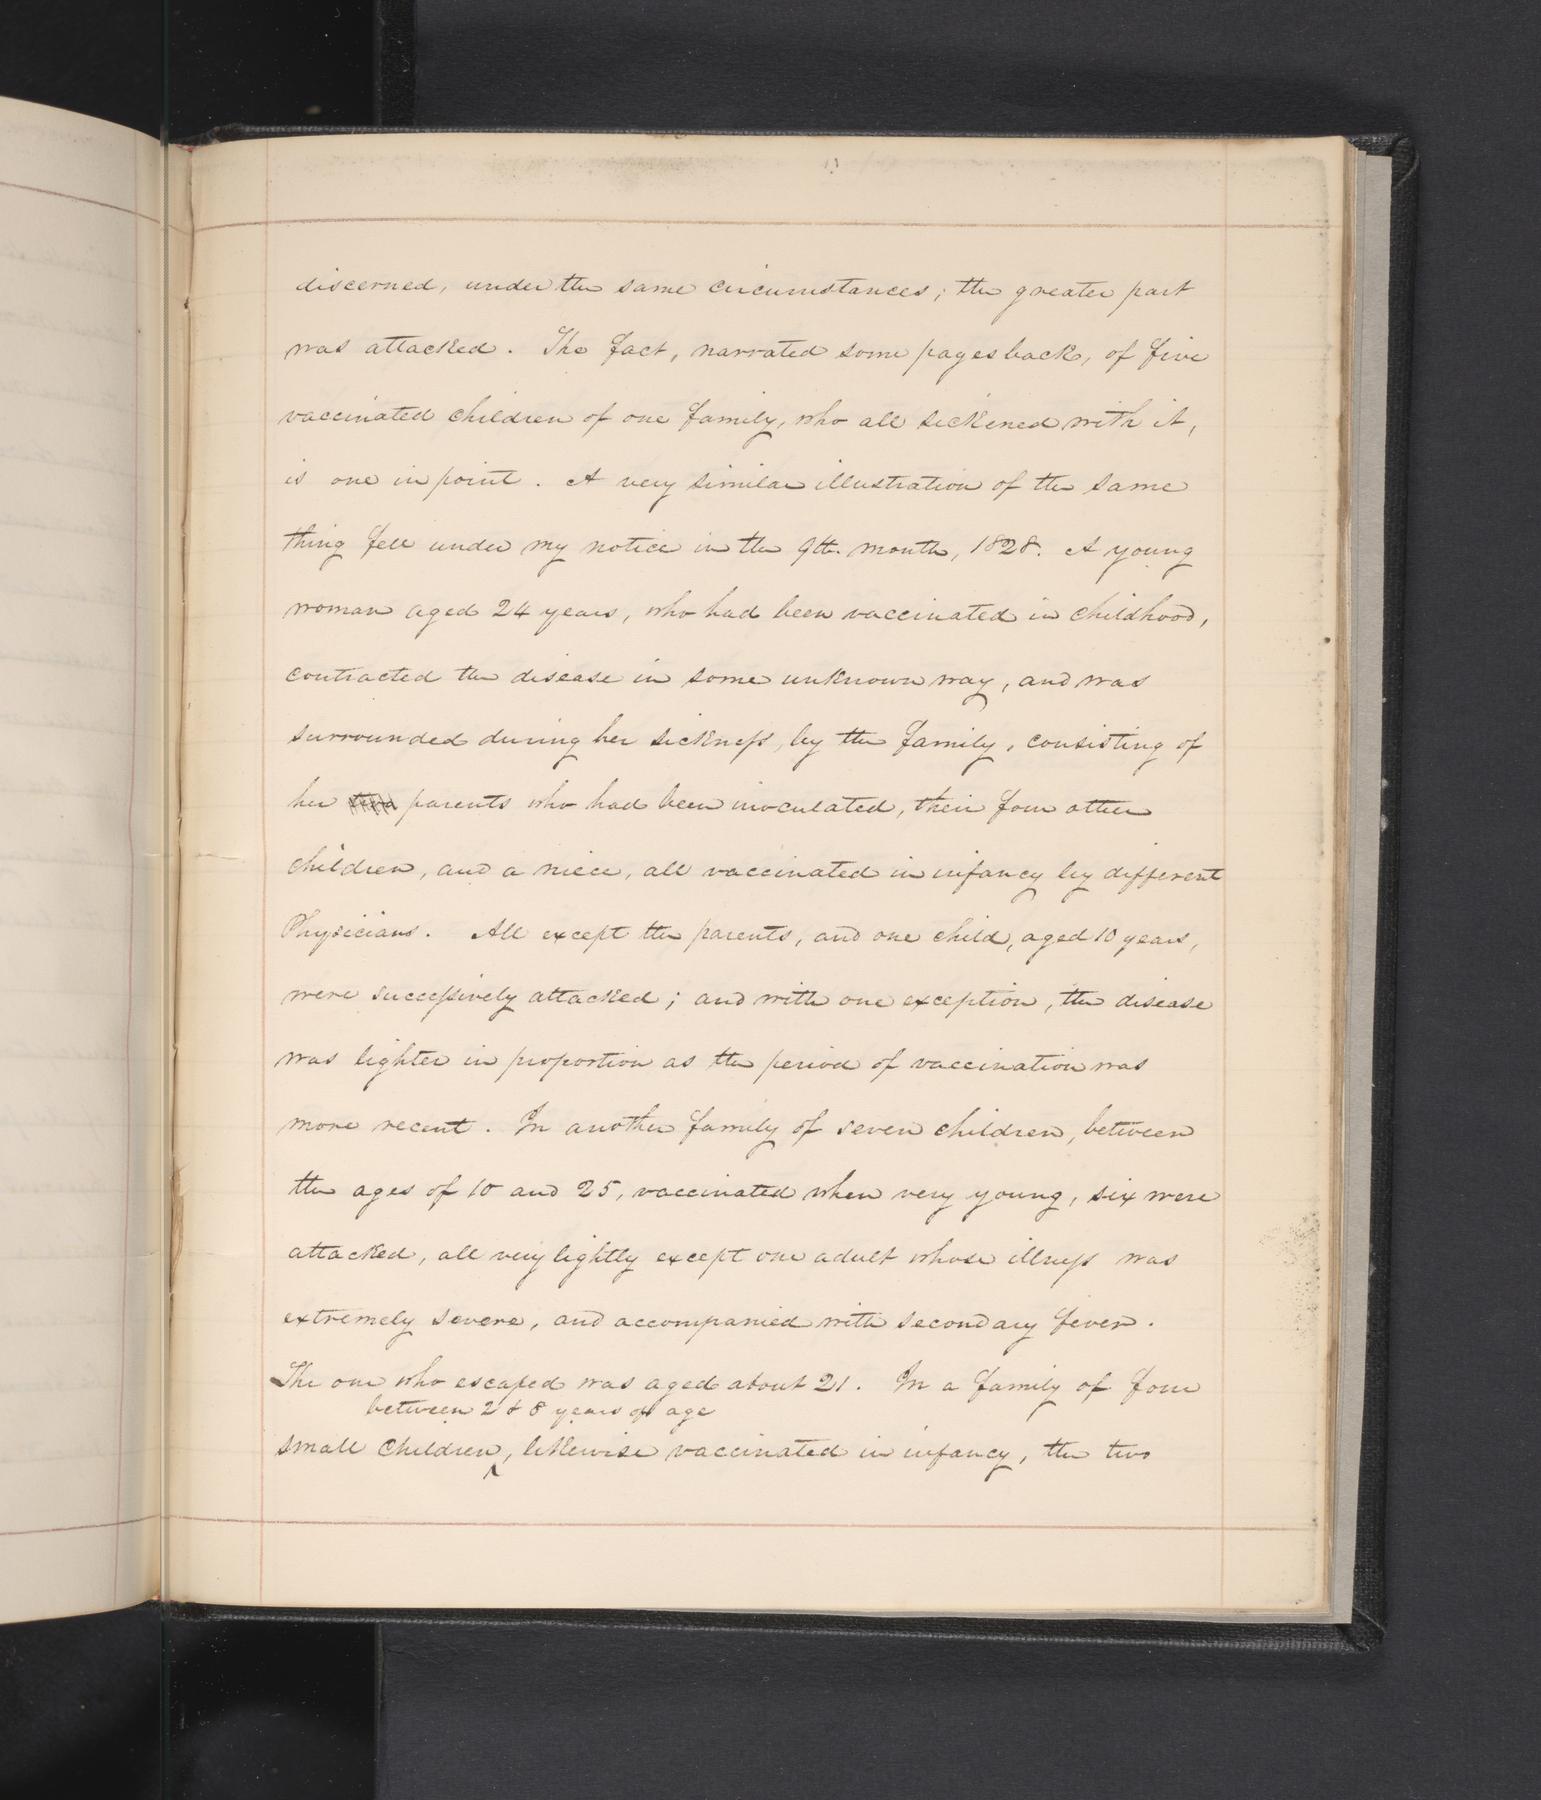 discerned, under the same circumstances; the greater part
was attacked. The fact, narrated some pages back, of five
vaccinated children of one family, who all sickened with it,
is one in point. A very similar illustration of the same
thing fell under my notice in the 9th. month, 1828. A young
woman aged 24 years, who had been vaccinated in childhood,
contracted the disease in some unknown way, and was
surrounded during her sickness, by the family, consisting of
her parents who had been inoculated, their four other
children, and a niece, all vaccinated in infancy by different
Physicians. All except the parents, and one child, aged 10 years,
were successively attacked; and with one exception, the disease
was lighter in proportion as the period of vaccination was
more recent. In another family of seven children, between
the ages of 10 and 25, vaccinated when very young, six were
attacked, all very lightly except one adult whose illness was
extremely severe, and accompanied with secondary fever.
The one who escaped was aged about 21. In a family of four
between 2 & 8 years of age
small children, likewise vaccinated in infancy, the two